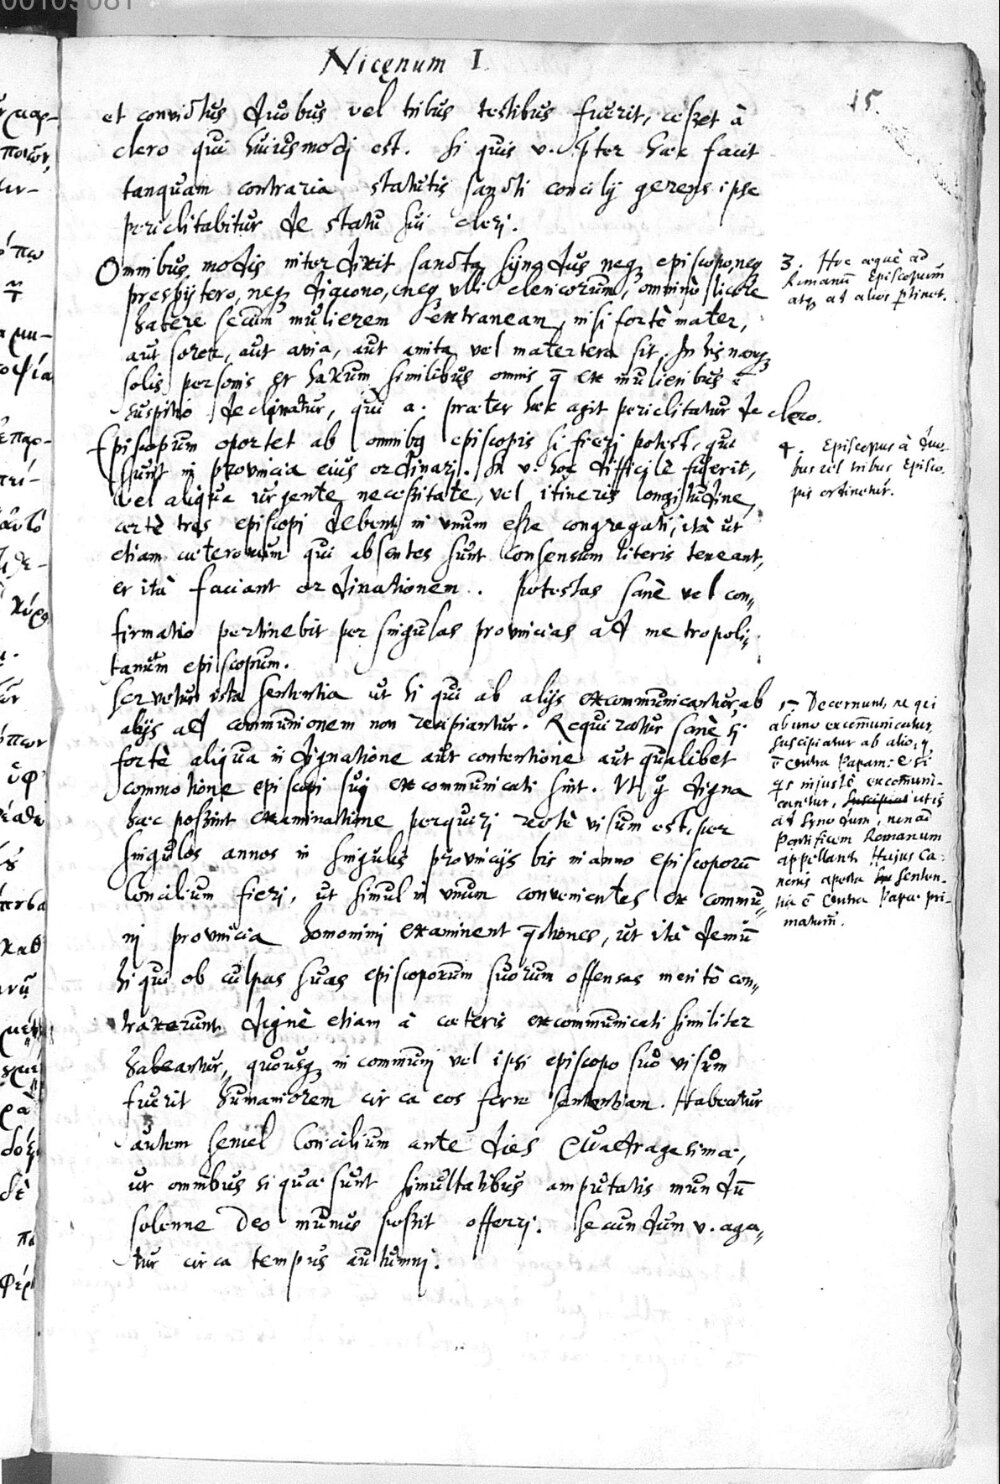 00109081
Nicęnum I
15.
et convictus duobus vel tribus testibus fuerit, cesset à
clero qui huiusmodj est. Si quis v. pter haec facit
tanquam contraria statutis sancti concilij gerens ipse
periclitabitur de statu sui clerj.
Omnibus modis interdixit sancta synodus neq episcopo, neq
presbytero, neq diacono, neq ulli clericorum, omnino licere
habere secum mulierem extraneam, nisi fortè mater,
aut soror, aut avia, aut amita vel matertera sit. In his namq
solis personis et harum similibus omnis q̄ ex mulieribus ē
suspitio declinatur, qui a. praeter haec agit periclitatur de clero.
Episcopum oportet ab omnibq episcopis si fieri potest, qui
sunt in provincia eius ordinarj. Si v. hoc difficile fuerit,
vel aliqua urgente necessitate, vel itineris longitudine,
certè tres episcopi debent in unum esse congregati, ità ut
etiam caeterorum qui absentes sunt consensum literis teneant,
et ità faciant ordinationem. Potestas sanè vel con„
firmatio pertinebit per singulas provincias ad metropoli„
tanum episcopum.
Servetur ista sententia ut hi qui ab alijs excommunicantur, ab
alijs ad communionem non recipiantur. Requiratur sanè si
fortè aliqua indignatione aut contentione aut qualibet
commotione episcopi sui excommunicati sint. Ut g̊ digna
haec possint examinatione perquirj rectè visum est, per
singulos annos in singulis provincijs bis in anno Episcoporū
Concilium fierj, ut simul in unum convenientes ex commu„
nj provincia homonini examinent q̄stiones, ut ità demū
hi qui ob culpas suas episcoporum suorum offensas meritò con„
traxerunt dignè etiam à caeteris excommunicati similiter
habeantur, quousq in communj vel ipsi episcopo suo visum
fuerit humaniorem circa eos ferre sententiam. Habeatur
autem semel Concilium ante dies Quadragesimae,
ut omnibus si quae sunt simultatibus amputatis mundū
solenne Deo munus possit offerrj. Secundum v. aga„
tur circa tempus autumnj.
3. Hoc aequè ad
Romanū Episcopum
atq ad alios ptinet.
4. Episcopus à duo
bus vel tribus Episco
pis ordinetur.
5. Decernunt, ne qui
ab uno excōmunicatur,
suscipiatur ab alio, q.
ē contra Papam: et si
q̄s iniustè excōmuni-
cantur, utis
ad synodum, non ad
Pontificem Romanum
appellant. Hujus Ca-
nonis aperta senten-
tia ē contra Papae pri-
matum̄.